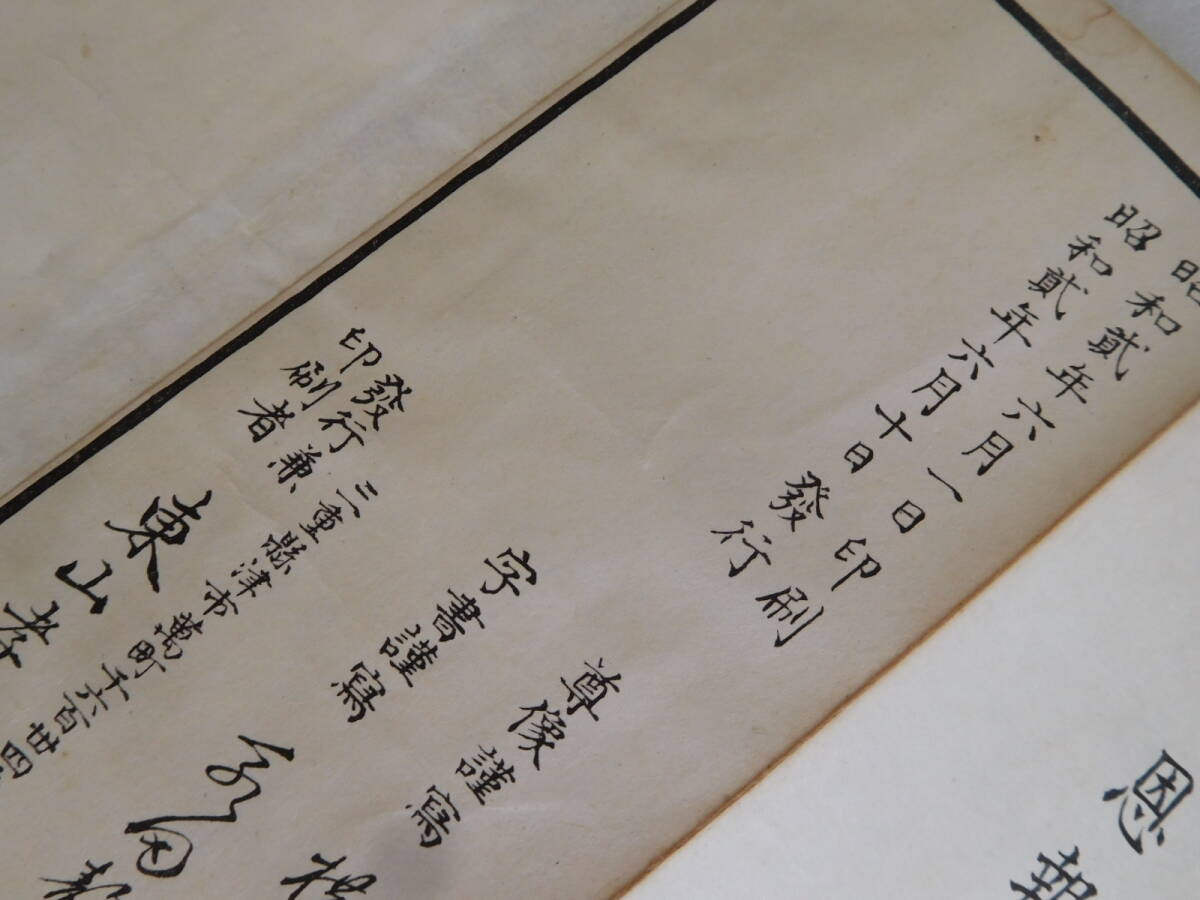 昭
昭和貳年六月一日印刷
昭和貳年六月十日發行
尊像謹寫
字書謹寫
三重縣津市萬町千六百廿四
發行兼
印刷者
東山孝
恩報